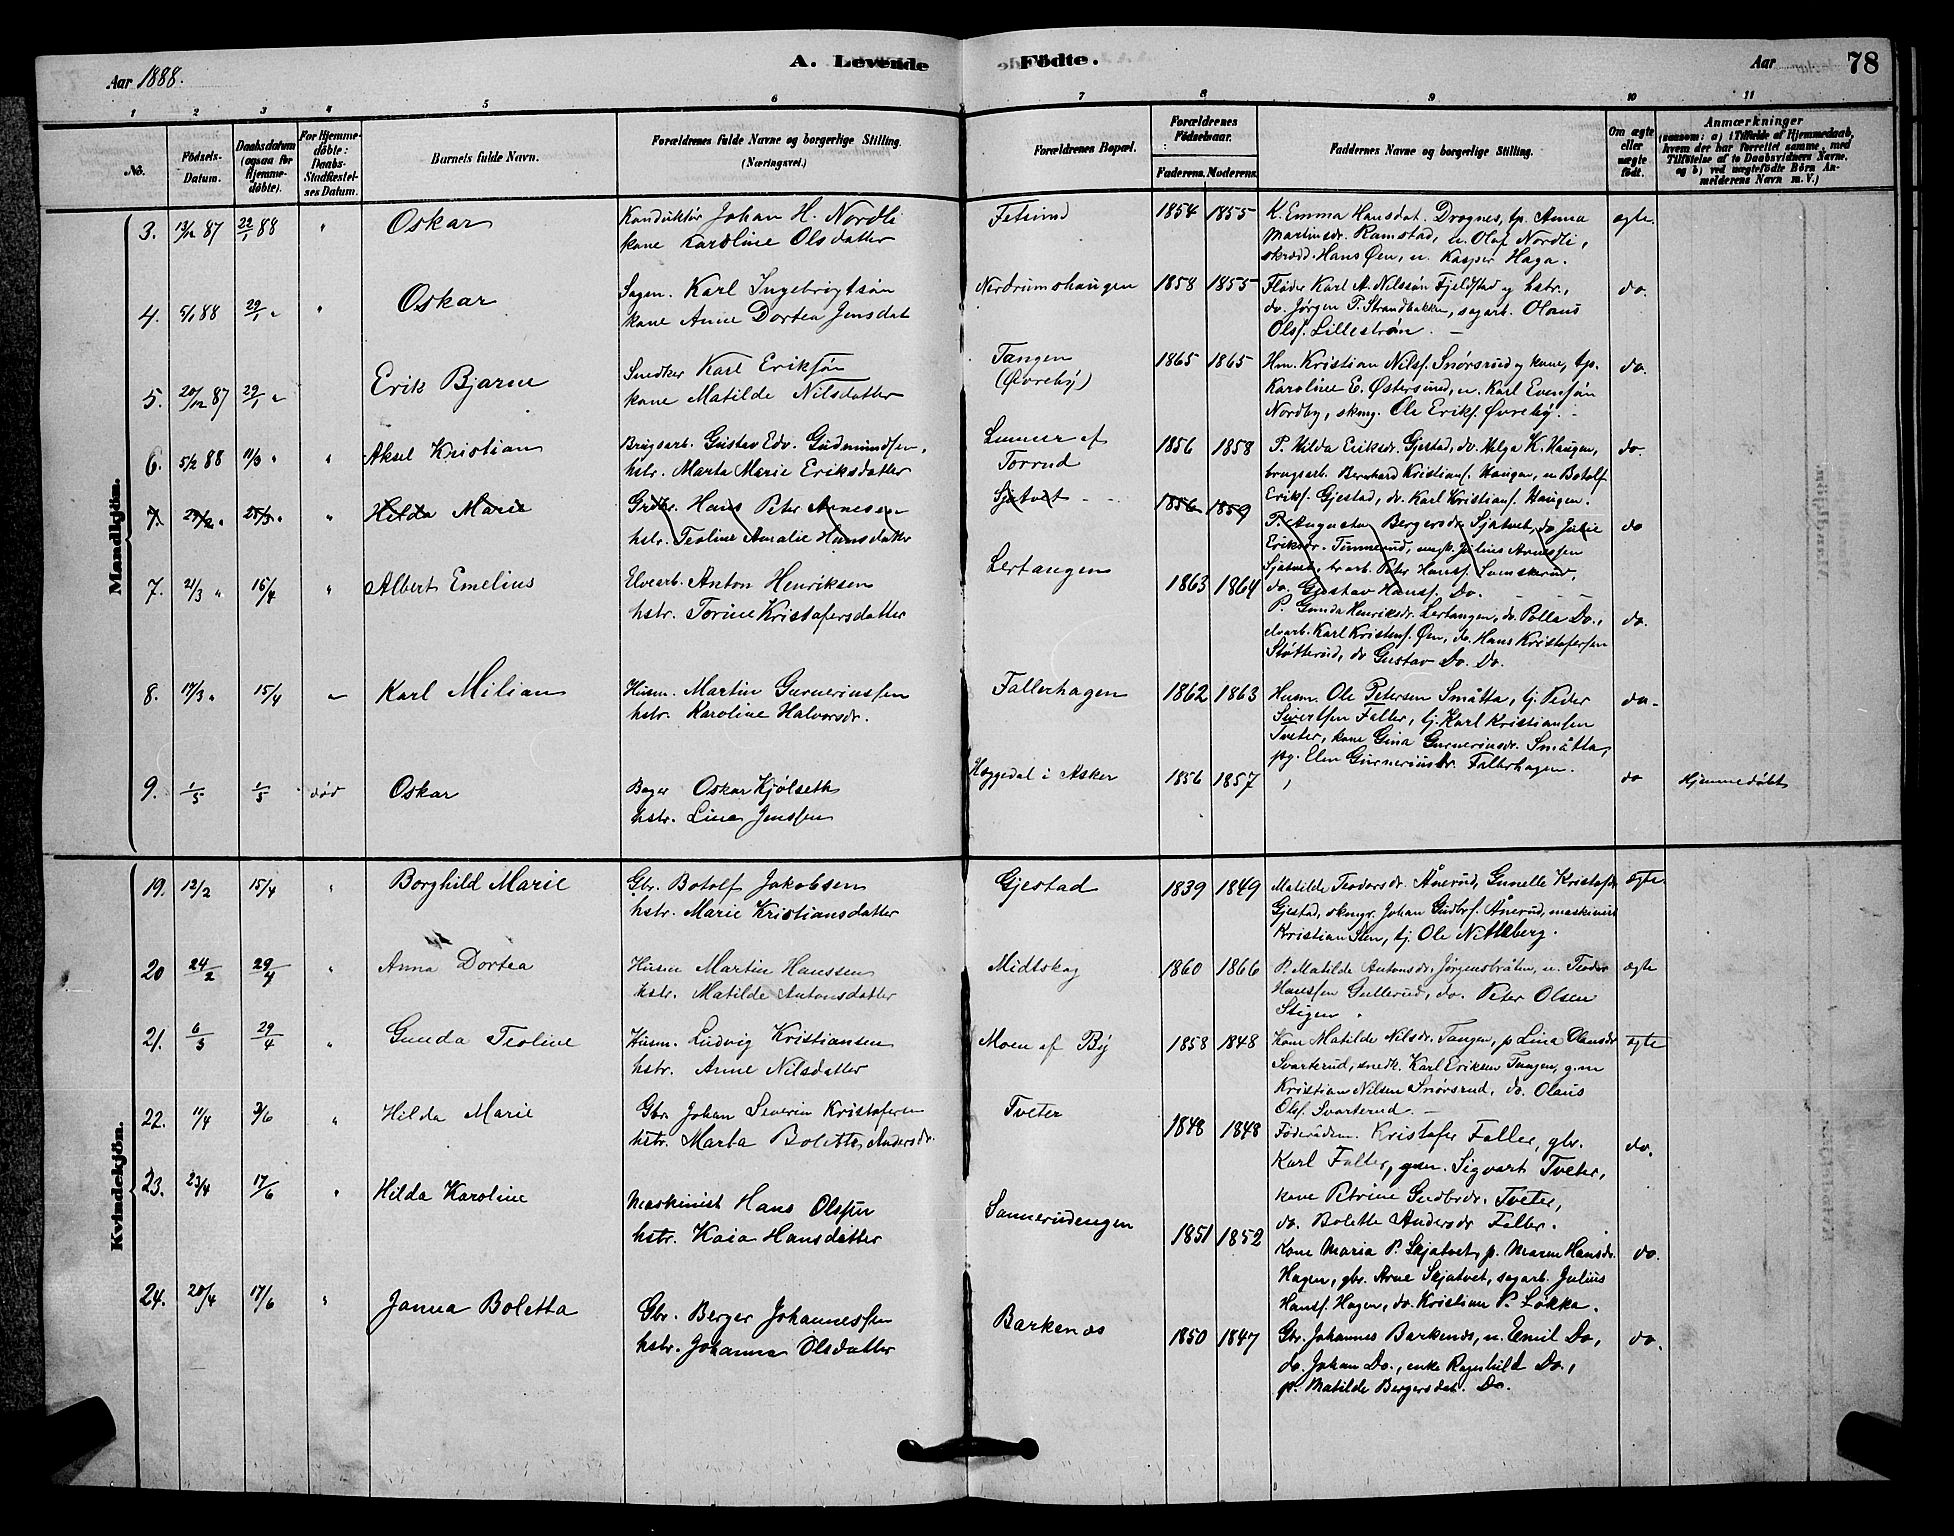 Aar 1888.
A. Levende Födte.
Aar
78
1 2 3 4 5 6 7 8 9 10 11
No.
Födsels-Datum.
Daabsdatum (ogsaa for Hjemmedöbte).
For Hjemmedöbte: Daabs-Stadfæstelses Datum.
Barnets fulde Navn.
Forældrenes fulde Navne og borgerlige Stilling. (Næringsvei.)
Forældrenes Bopæl.
Forældrenes Födselsaar.
Faderens. Moderens.
Faddernes Navne og borgerlige Stilling.
Om ægte eller uægte födt.
Anmærkninger
(saasom: a) i Tilfælde af Hjemmedaab, hvem der har forrettet samme, med Tilföielse af to Daabsvidners Navne, og b) ved uægtefödte Börn Anmelderens Navn m. V.)
Mandkjön.
3. 13/12 87 22/1 88 " Oskar
Konduktör Johan H. Nordli
kone Karoline Olsdatter
Fetsund 1854 1855
K. Emma Hansdat. Dragnes, tp. Anna
Martinsdr. Ramstad, u. Olaf Nordli,
skrædd. Hans Øen, u. Kasper Haga.
ægte.
4. 5/1 88 29/1 " " Oskar
Sagm. Karl Ingebrigtsön
kone Anne Dortea Jensdat
Nordrumshaugen 1858 1855
Fløder Karl A. Nilssön Fjeldstad og hstr.,
do. Jørgen T. Strandbakken, sagarb. Olaus
Olsf. Lillestrøm. —
do.
5. 20/12 87 29/1 " Erik Bjarne
Snedker Karl Eriksön
kone Matilde Nilsdatter
Tangen
(Øvreby)
1865 1865
Hm. Kristian Nilsf. Snörsrud og kone, tp.
Karoline E. Østersund, u. Karl Evensön
Nordby, skmg. Ole Eriksf. Øvreby. -
do.
6. 5/2 88 11/3 " " Aksel Kristian
Brugsarb. Gustav Edv. Gudmundsen,
hstr. Marte Marie Eriksdatter
Lunner af
Torrud
1856 1858
P. Hilda Eriksdr. Gjestad, do. Helga K. Haugen,
brugsarb. Bernhard Kristiansf. Haugen, u Botolf
Eriksf. Gjestad, do. Karl Kristiansf. Haugen.
do.
7. 29/2 " 25/3 " " Hilda Marie
Grdbr. Hans Peter Arnesen
hstr. Teoline Amalie Hansdatter
Sjatvet - - 1856 1859
P. Augusta Bergersdr. Sjatvet, do. Julie
Eriksdr. Timmerud, ungk. Julius Arnessen
Sjatvet, brarb. Peter Hansf. Lunskerud,
do. Gustav Hansf. Do. - - -
do
7. 21/3 " 15/4 " Albert Emelius
Elvearb. Anton Henriksen
hstr. Torine Kristofersdatter
Lertangen
1863 1864
P. Gunda Henriksdr. Lertangen, do. Polla Do.,
elvarb. Karl Kristensf. Øen, do. Hans Kristofersen
Støtterud, do Gustav Do. Do.
do.
8. 17/3 " 15/4 " Karl Milian
Husm. Martin Gurneriussen
hstr. Karoline Halvorsdr.
Fallerhagen 1862 1863
Husm. Ole Petersen Småtta, tj. Peder
Sivertsen Faller, tj. Karl Kristiansen
Tveter, kone Gina Gurneriusdr. Småtta,
pg. Elen Gurneriusdr. Fallerhagen.
do-
9. 1/5 1/5 död Oskar
Bager Oskar Kjölseth
hstr. Lina Jenssen
Heggedal i Asker 1856 1857
do Hjemmedöbt
Kvindekjön.
19. 12/2 15/4 " Borghild Marie
Gbr. Botolf Jakobsen
hstr. Marie Kristiansdatter
Gjestad 1839 1849
Matilde Teodorsdr. Ånerud, Gunelle Kristofdr
Gjestad, skmgr. Johan Gudbrf. Ånerud, maskinist
Kristian Sten, tj. Ole Nitteberg.
ægte.
20 24/2 29/4 " Anna Dortea
Husm Martin Hanssen
hstr. Matilde Antonsdatter
Midtskog 1860 1866
P. Matilde Antonsdr. Jørgensbråten, u. Teodor
Hanssen Gullerud, do. Peter Olsen
Stigen
ægte
21. 6/3 29/4 " Gunda Teoline
Husm. Ludvig Kristiansen
hstr. Anne Nilsdatter
Moen af By 1858 1848
Kone Matilde Nilsdr. Tangen, p Lina Olausdr
Svarterud, snedk. Karl Eriksen Tangen, g.m
Kristian Nilsen Snörsrud, do. Olaus
Olsf. Svarterud. —
ægte
22. 11/4 3/6 " Hilda Marie
Gbr. Johan Severin Kristofersen
hstr. Marta Bolette Andersdr.
Tveter 1848 1848
Föderådsm. Kristofer Faller, gbr.
Karl Faller, gdm. Sigvart Tveter,
kone Petrine Gudbrdr. Tveter,
do. Bolette Andersdr Faller.
do.
23. 23/4 17/6 " Hilda Karoline
Maskinist Hans Olsen
hstr. Kaia Hansdatter
Sannerudengen 1851 1852
Kone Maria P. Skjatvet, p. Maren Hansdr.
Hagen, gbr. Arne Skjatvet, sagarb. Julius
Hansf. Hagen, do. Kristian P. Løkka.
do.
24. 20/4 17/6 " Janna Boletta
Gbr. Berger Johannessen
hstr. Johanna Olsdatter
Barkenæs 1850 1847
Gbr. Johannes Barkenæs, u. Emil Do,
do. Johan Do., enke Ragnhild Do.,
p. Matilde Bergersdat. Do.
do.